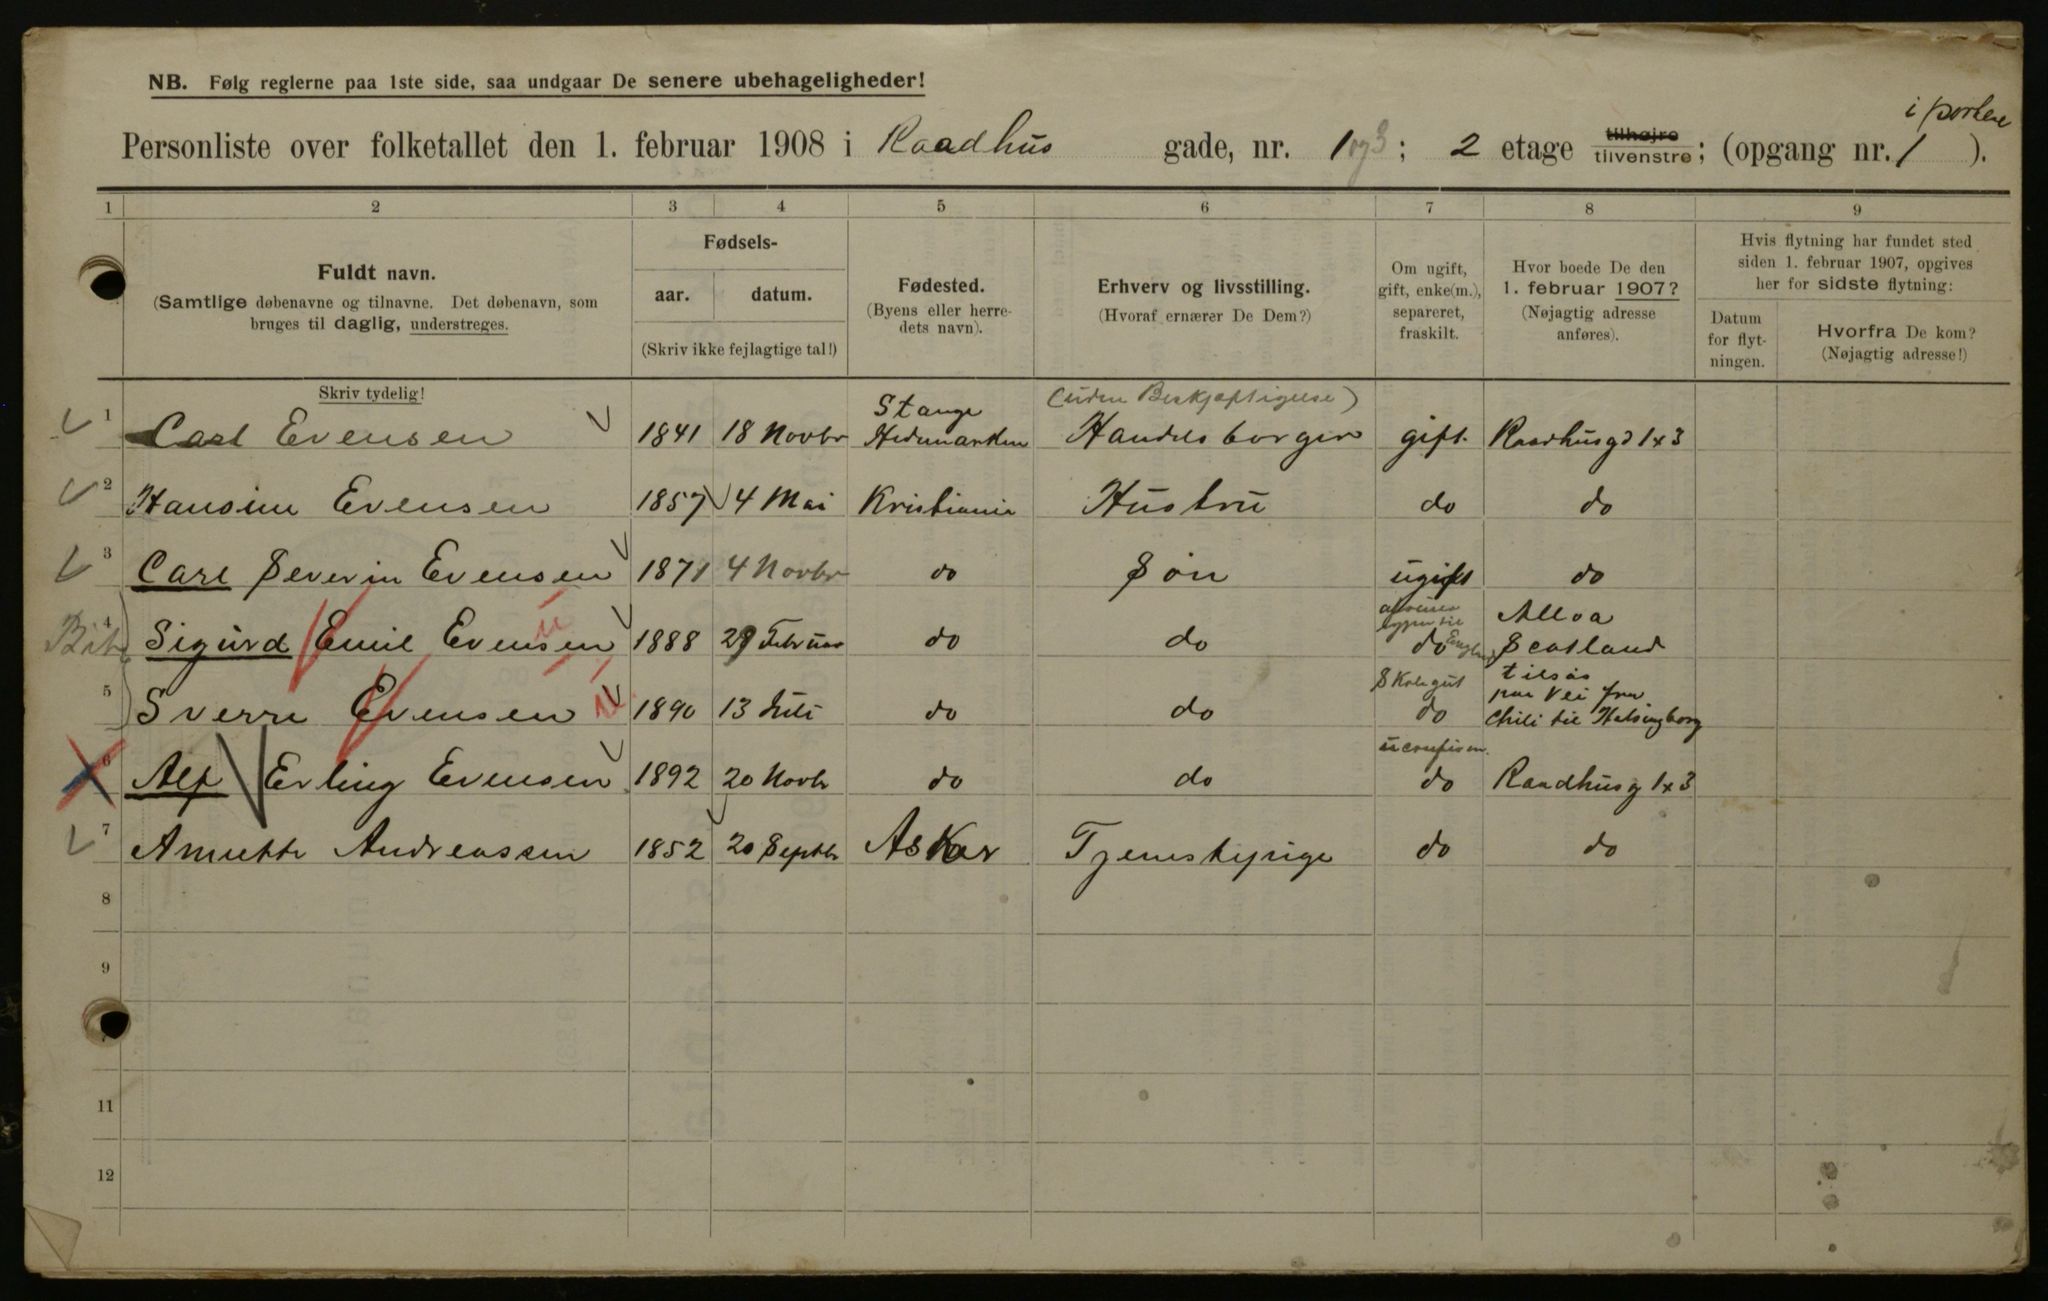 NB. Følg reglerne paa 1ste side, saa undgaar De senere ubehageligheder!
i porten
Personliste over folketallet den 1. februar 1908 i Raadhus gade, nr. 1 og 3; 2 etage tilhøjre tilvenstre; (opgang nr. 1 ).
1 2 3 4 5 6 7 8 9
Fuldt navn.
(Samtlige døbenavne og tilnavne. Det døbenavn, som
bruges til daglig, understreges.
Fødsels-
aar. datum.
(Skriv ikke fejlagtige tal!)
Fødested.
(Byens eller herre-
dets navn).
Erhverv og livsstilling.
(Hvoraf ernærer De Dem?)
Om ugift,
gift, enke(m.),
separeret,
fraskilt.
Hvor boede De den
1. februar 1907?
(Nøjagtig adresse
anføres).
Hvis flytning har fundet sted
siden 1. februar 1907, opgives
her for sidste flytning:
Datum
for flyt-
ningen.
Hvorfra De kom?
(Nøjagtig adresse!)
Skriv tydelig!
Stange (uden Beskjæftigelse)
1 Carl Evensen 1841 18 Novbr Hedemarken Handelsborger gift. Raadhusgd 1x3
2 Hansine Evensen 1857 4 Mai Kristiania Hustru do do
3 Carl Severin Evensen 1871 4 Novbr do Søn ugift do
Alloa
4 Sigurd Emil Evensen 1888 29 Februar do do do England Scotland
Skolegut tilsøs
paa Vei fra
5 Sverre Evensen 1890 13 Juli do do do Chili til Helsingborg
6 Alf Erling Evensen 1892 20 Novbr do do do Raadhusg 1x3
7 Annette Andreassen 1852 20 Septbr Asker Tjenestepige do do
8
9
11
12